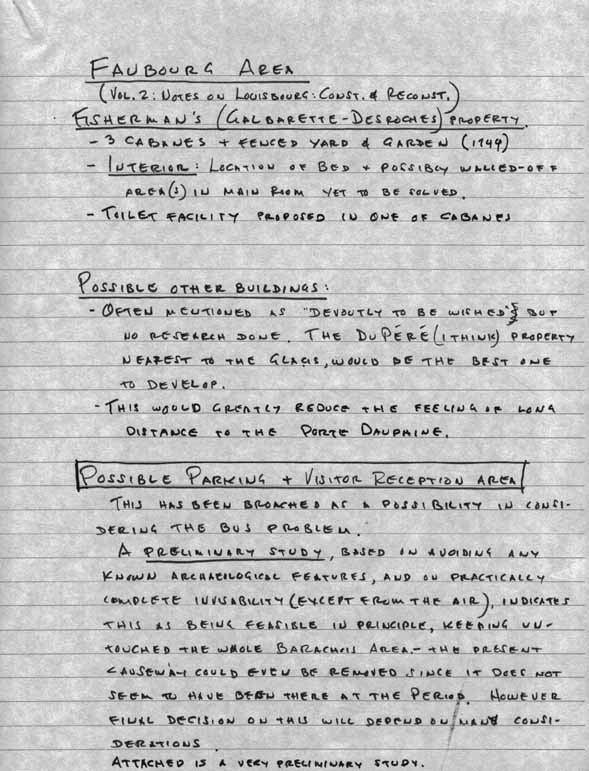 FAUBOURG AREA
(VOL. 2: NOTES ON LOUISBOURG: CONST. & RECONST.)
FISHERMAN'S (GALBARETTE-DESROCHES) PROPERTY.
- 3 CABANES + FENCED YARD & GARDEN (1744)
- INTERIOR: LOCATION OF BED + POSSIBLY WALLED-OFF
AREA(S) IN MAIN ROOM YET TO BE SOLVED.
- TOILET FACILITY PROPOSED IN ONE OF CABANES
POSSIBLE OTHER BUILDINGS:
- OFTEN MENTIONED AS "DEVOUTLY TO BE WISHED" BUT
NO RESEARCH DONE. THE DUPÉRÉ (I THINK) PROPERTY
NEAREST TO THE GLACIS, WOULD BE THE BEST ONE
TO DEVELOP.
- THIS WOULD GREATLY REDUCE THE FEELING OF LONG
DISTANCE TO THE PORTE DAUPHINE.
POSSIBLE PARKING + VISITOR RECEPTION AREA
THIS HAS BEEN BROACHED AS A POSSIBILITY IN CONSI-
DERING THE BUS PROBLEM.
A PRELIMINARY STUDY, BASED ON AVOIDING ANY
KNOWN ARCHAEILOGICAL FEATURES, AND ON PRACTICALLY
COMPLETE INVISABILITY (EXCEPT FROM THE AIR), INDICATES
THIS AS BEING FEASIBLE IN PRINCIPLE, KEEPING UN-
TOUCHED THE WHOLE BARACHOIS AREA - THE PRESENT
CAUSEWAY COULD EVEN BE REMOVED SINCE IT DOES NOT
SEEM TO HAVE BEEN THERE AT THE PERIOD. HOWEVER
FINAL DECISION ON THIS WILL DEPEND ON MANY CONSI-
DERATIONS.
ATTACHED IS A VERY PRELIMINARY STUDY.